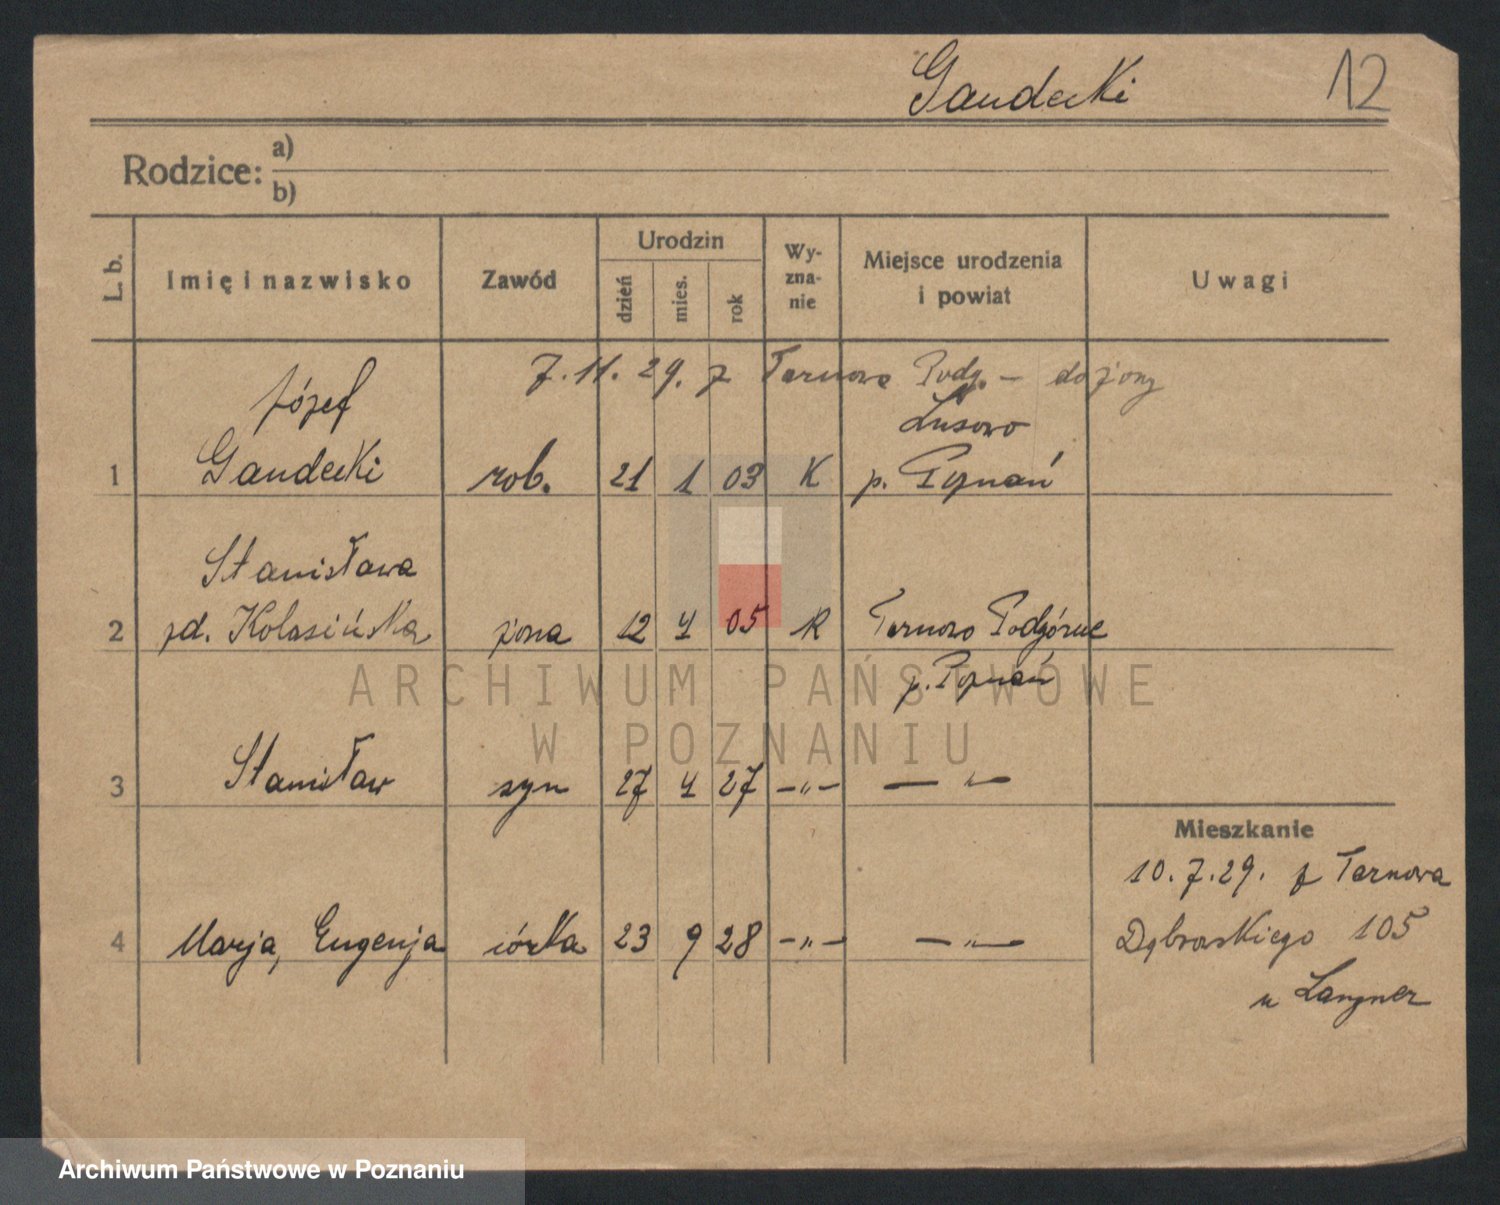 Gandecki 12
Rodzice: a)
b)
L. b. Imię i nazwisko Zawód Urodzin dzień mies. rok Wy-zna-nie Miejsce urodzenia i powiat Uwagi
7. 11. 29. z Tarnowa Podg. – do żony
Józef Lusowo
1 Gandecki rob. 21 1 03 K p. Poznań
Stanisława
2 zd. Kolasińska żona 12 4 05 K Tarnowo Podgórne
p. Poznań
3 Stanisław syn 27 4 27 –„– –„–
Mieszkanie
10. 7. 29. z Tarnowa
4 Marja, Eugenja córka 23 9 28 –„– –„– Dąbrowskiego 105
u Langner
ARCHIWUM PAŃSTWOWE
W POZNANIU
Archiwum Państwowe w Poznaniu